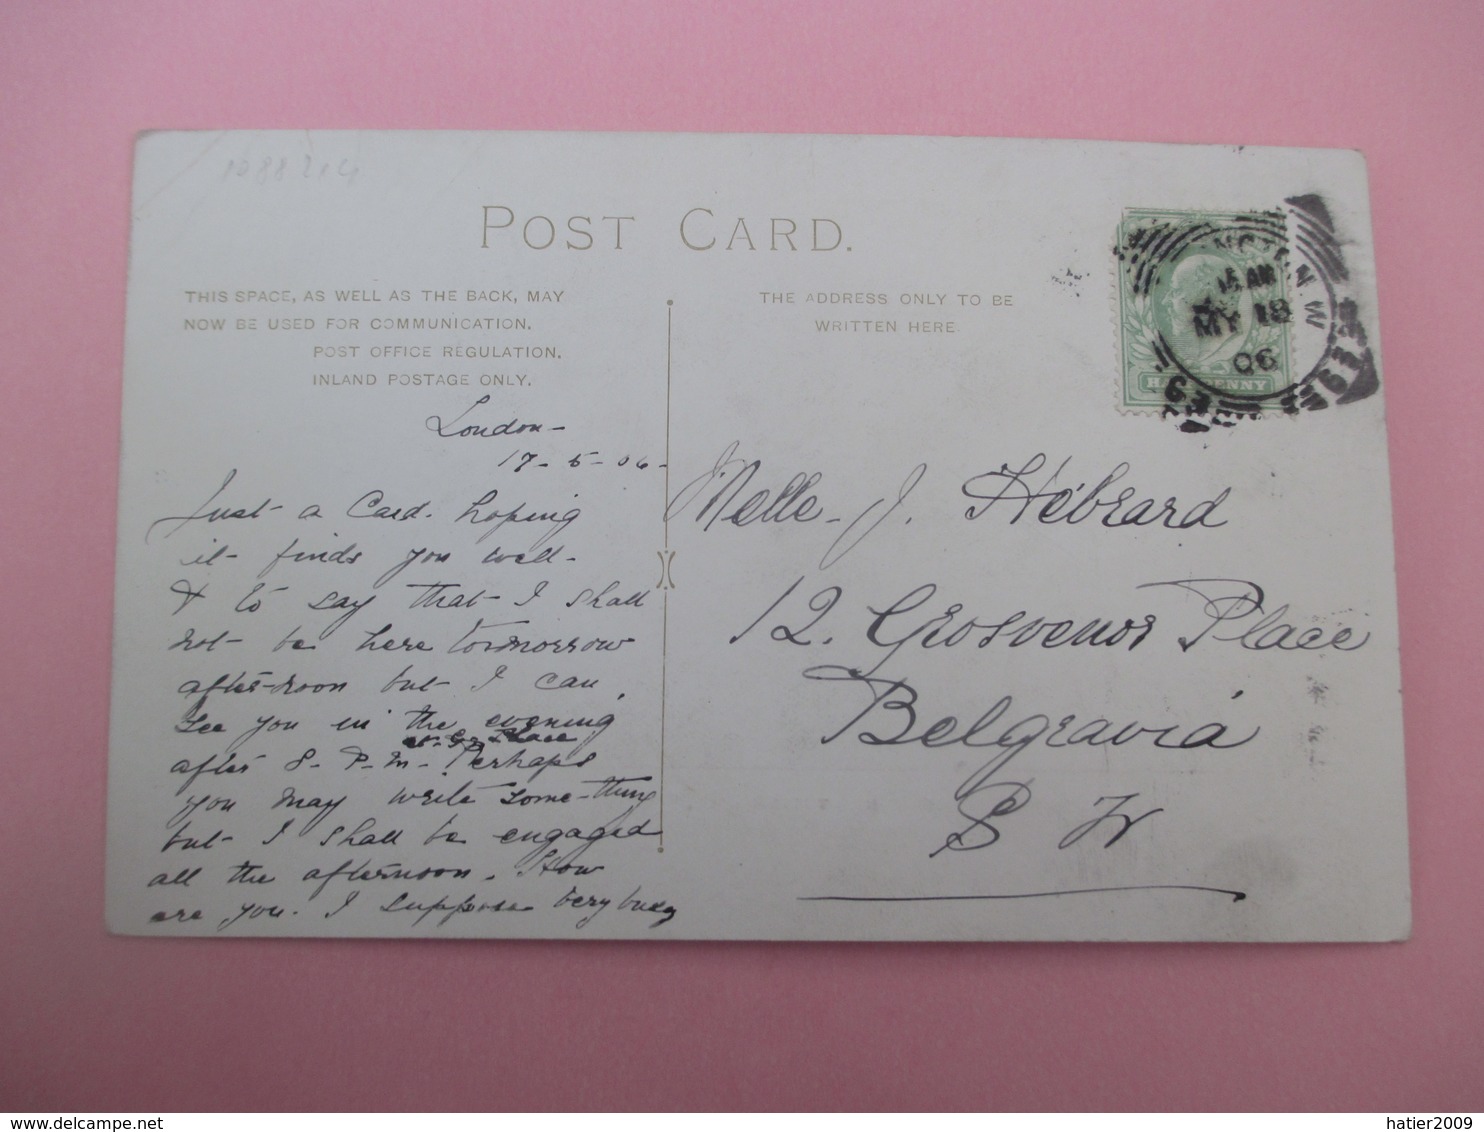 POST CARD.
THIS SPACE, AS WELL AS THE BACK, MAY
NOW BE USED FOR COMMUNICATION.
POST OFFICE REGULATION.
INLAND POSTAGE ONLY.
THE ADDRESS ONLY TO BE
WRITTEN HERE.
London-
17-5-06-
Just a Card. hoping
it finds you well-
& to say that I shall
not be here tomorrow
after-noon but I can
see you in the evening
at G. Place
after 8-P-M- Perhaps
you may write some-thing
but I shall be engaged
all the afternoon. How
are you. I suppose very busy
Melle. J. Hébrard
12. Grosvenor Place
Belgravia
S W
MY 18
06
HALFPENNY
hatier2009